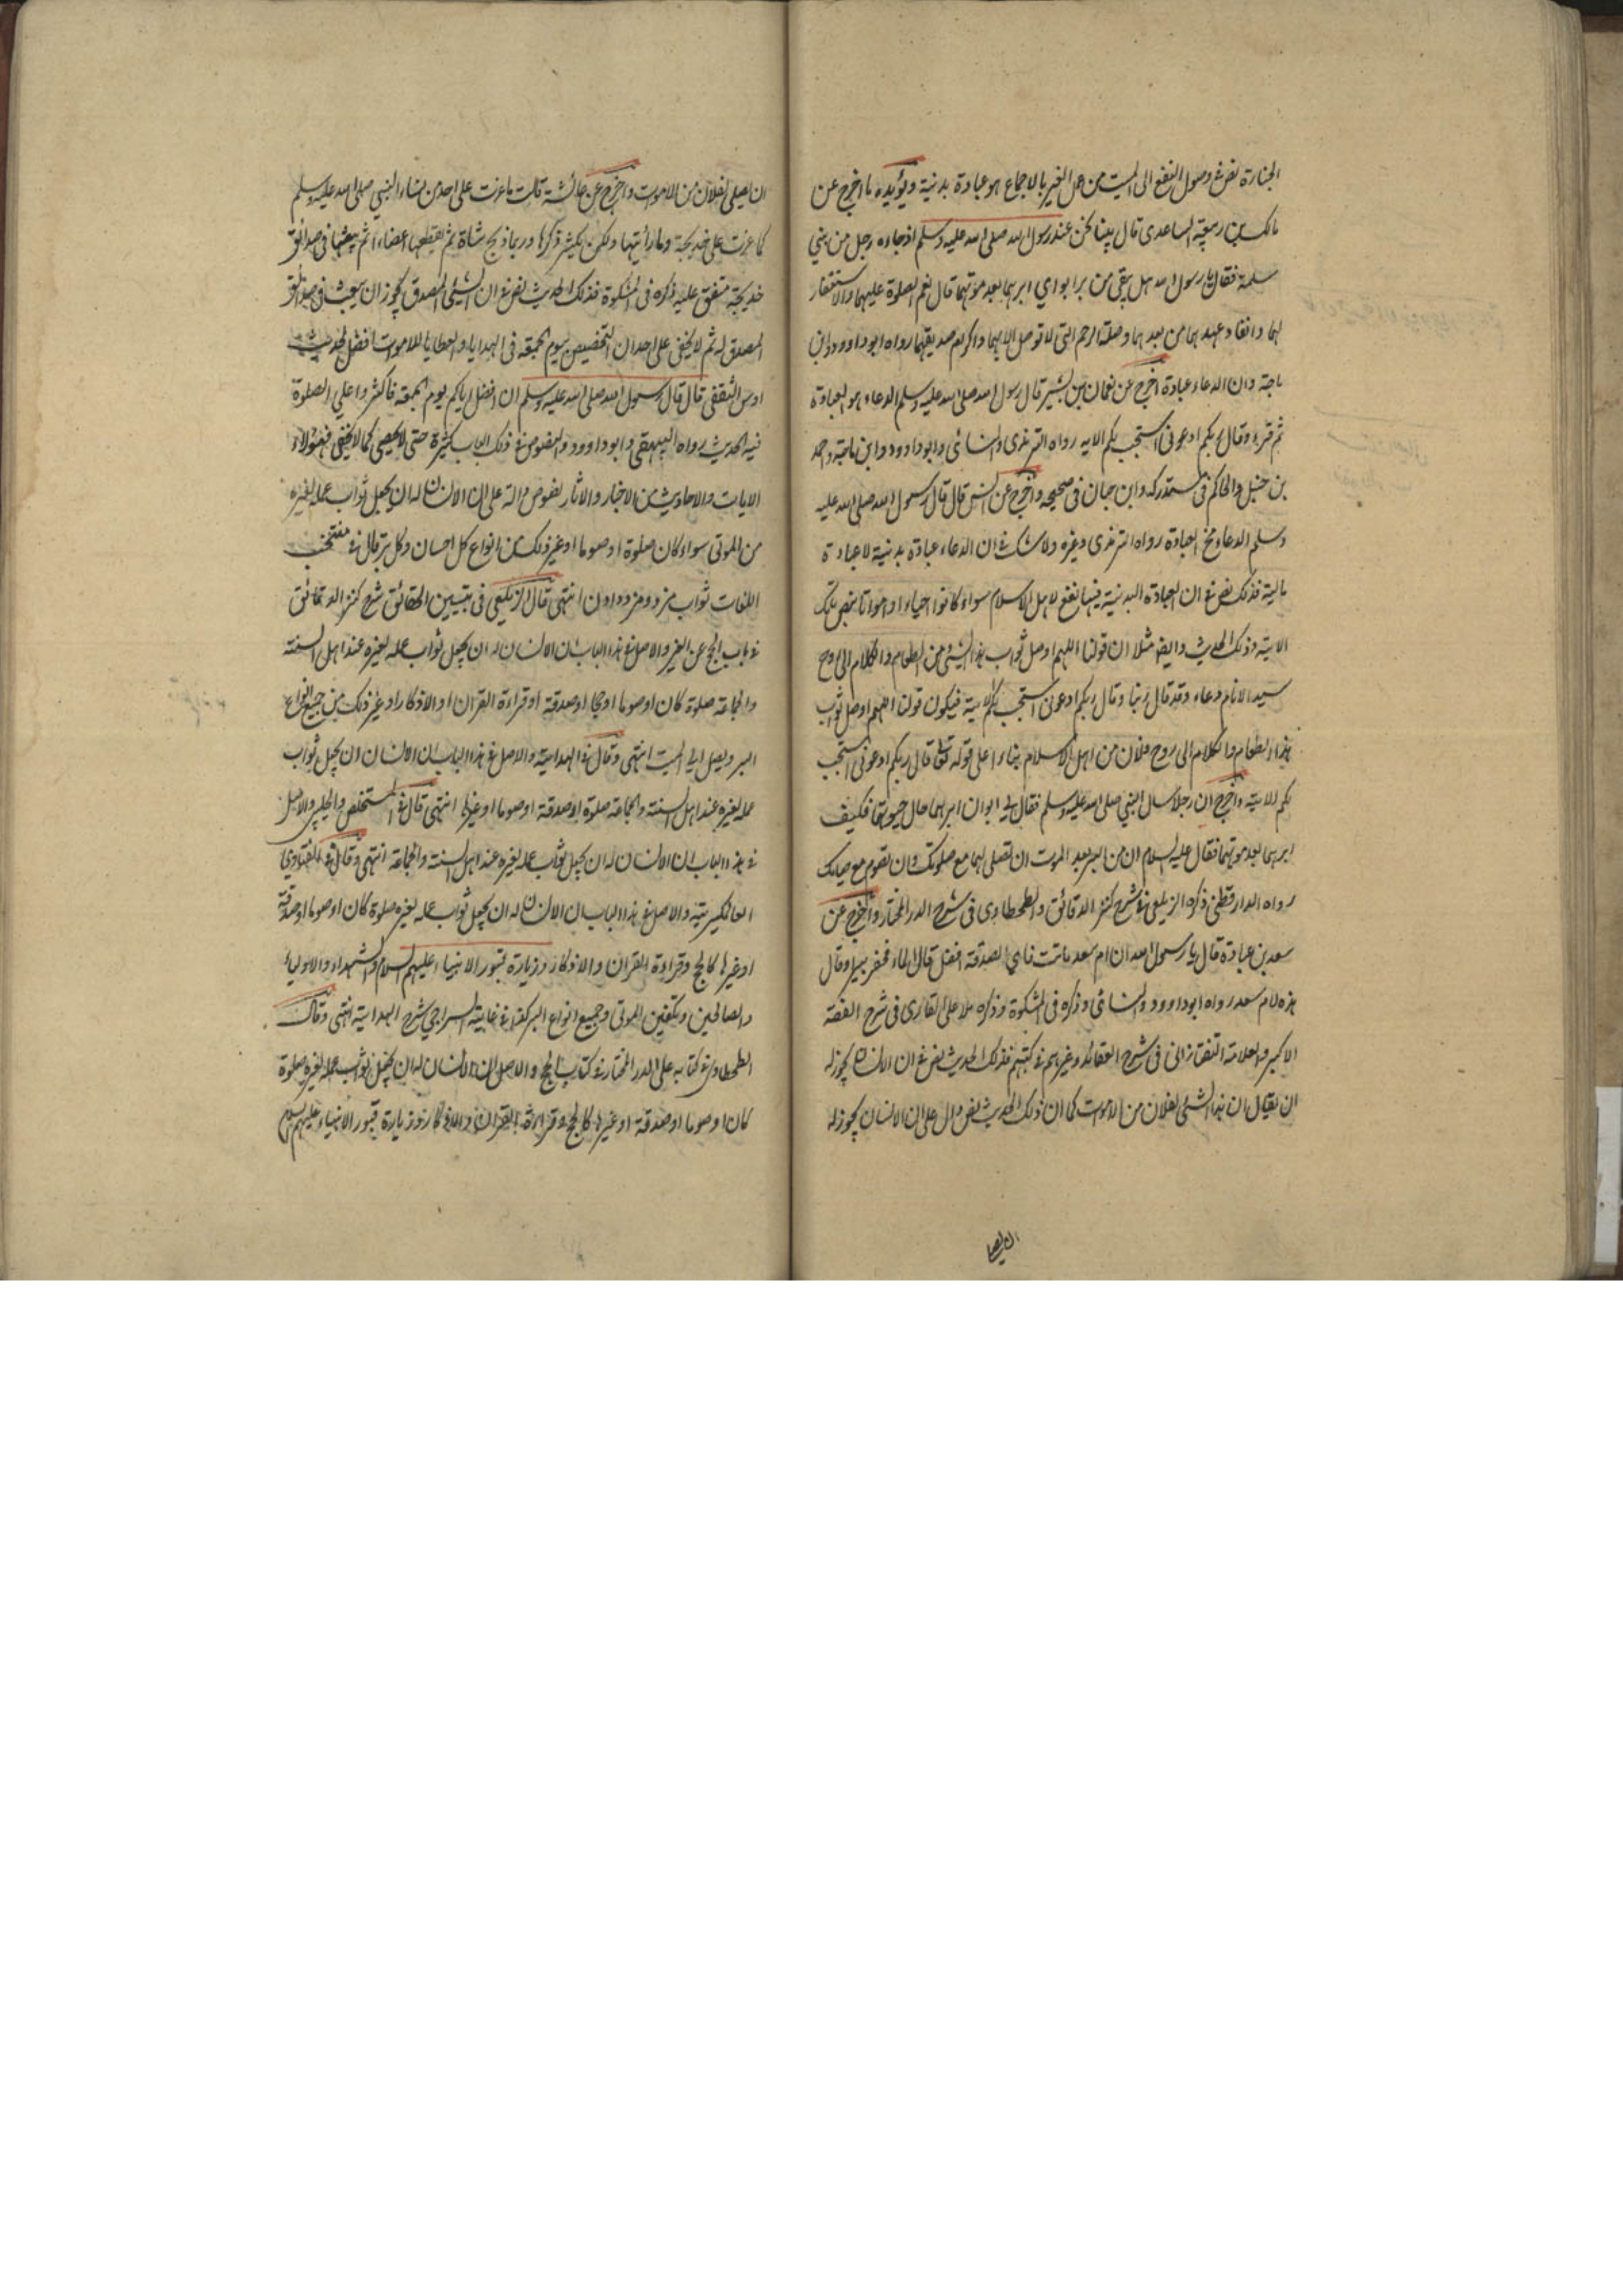 الجنازة نص فى وصول النفع الى الميت من عمل الغير بالاجماع هو عبادة بدنية ويؤيده ما اخرج عن
مالك بن ربيعة الساعدى قال بينا نحن عند رسول الله صلى الله عليه وسلم اذ جاءه رجل من بني
سلمة فقال يا رسول الله هل بقى من بر ابواي ابرهما بعد موتهما قال نعم الصلوة عليهما والاستغفار
لهما وانفاد عهدهما من بعدهما وصلة الرحم التى لا توصل الا بهما واكرام صديقهما رواه ابو داوود وابن
ماجة وان الدعاء عبادة اخرج عن نعمان بن بشير قال رسول الله صلى الله عليه وسلم الدعاء هو العبادة
ثم قرء وقال ربكم ادعونى استجب لكم الايه رواه الترمذى والنسائى وابو داوود وابن ماجة واحمد
بن حنبل والحاكم فى مستدركه وابن حبان فى صحيحه واخرج عن انس قال قال رسول الله صلى الله عليه
وسلم الدعاء مخ العبادة رواه الترمذى وغيره ولا شك ان الدعاء عبادة بدنية لا عبادة
مالية فذلك نص فى ان العبادة البدنية فيها نفع لاهل الاسلام سواء كانوا احياء او امواتا بنص تلك
الاية وذلك الحديث وايضا مثلا ان قولنا اللهم اوصل ثواب هذا الشئ من الطعام والكلام الى روح
سيد الانام دعاء وقد قال ربنا وقال ربكم ادعونى استجب لكم الاية فيكون قولنا اللهم اوصل ثواب
هذا الطعام والكلام الى روح فلان من اهل الاسلام بناءا على قوله تعالى قال ربكم ادعونى استجب
لكم الاية واخرج ان رجلا سال النبي صلى الله عليه وسلم فقال لي ابوان ابرهما حال حيوتهما فكيف
ابرهما بعد موتهما فقال عليه السلام ان من البر بعد الموت ان تصلى لهما مع صلوتك وان تصوم مع صيامك
رواه الدارقطنى ذكره الزيلعى فى شرح كنز الدقائق والطحطاوى فى شرح الدر المختار واخرج عن
سعد بن عبادة قال يا رسول الله ان ام سعد ماتت فاي الصدقة افضل قال الماء فحفر بيرا وقال
هذه لام سعد رواه ابو داوود والنسائى وذكره فى المشكوة وذكره ملا على القارى فى شرح الفقه
الاكبر والعلامة التفتازانى فى شرح العقائد وغيرهم فى كتبهم فذلك الحديث نص فى ان الانسان يجوز له
ان يقال ان هذا الشئ لفلان من الاموت كما ان ذلك الحديث نص دال على ان الانسان يجوز له
ان يصلى لفلان من الاموت واخرج عن عائشة قالت ما غرت على احد من نساء النبي صلى الله عليه وسلم
كما غرت على خديجة وما رأيتها ولكن يكثر ذكرها وربما ذبح شاة ثم يقطعها اعضاء ثم يبعثها فى صدائق
خديجة متفق عليه ذكره فى المشكوة فذلك الحديث نص فى ان الشئ المصدق يجوز ان يبعث فى صدائق
المصدق له ثم لا يخفى على احد ان التخصيص بيوم الجمعة فى الهدايا والعطايا للاموت افضل لحديث
اوس الثقفى قال قال رسول الله صلى الله عليه وسلم ان افضل ايامكم يوم الجمعة فاكثروا على الصلوة
فيه الحديث رواه البيهقى وابو داوود والنصوص فى ذلك الباب كثيرة حتى لا يحصى كما لا يخفى فهؤلاء
الايات والاحاديث من الاخبار والاثار نصوص دالة على ان الانسان له ان يجعل ثواب عمله لغيره
من الموتى سواء كان صلوة او صوما او غير ذلك من انواع كل احسان وكل بر قال فى منتخب
اللغات ثواب مزد ومزد دادن انتهى قال الزيلعى فى تبيين الحقائق شرح كنز الدقائق
فى باب الحج عن الغير والاصل فى هذا الباب ان الانسان له ان يجعل ثواب عمله لغيره عند اهل السنة
والجماعة صلوة كان او صوما او حجا او صدقة او قراءة القران او الاذكار او غير ذلك من جميع انواع
البر ويصل الى الميت انتهى وقال فى الهداية والاصل فى هذا الباب ان الانسان ان يجعل ثواب
عمله لغيره عند اهل السنة والجماعة صلوة او صدقة او صوما او غيرها انتهى قال فى المستخلص والحلبى والاصل
فى هذا الباب ان الانسان له ان يجعل ثواب عمله لغيره عند اهل السنة والجماعة انتهى وقال فى الفتاوى
العالمكيرية والاصل فى هذا الباب ان الانسان له ان يجعل ثواب عمله لغيره صلوة كان او صوما او صدقة
او غيرها كالحج وقراءة القران والاذكار وزيارة قبور الانبياء عليهم السلام والشهداء والاولياء
والصالحين وتكفين الموتى وجميع انواع البر كذا فى غاية السراجي شرح الهداية انتهى وقال
الطحطاوى فى كتابه على الدر المختار فى كتاب الحج والاصل ان الانسان له ان يجعل ثواب عمله لغيره صلوة
كان او صوما او صدقة او غيرها كالحج وقراءة القران والاذكار وزيارة قبور الانبياء عليهم السلام